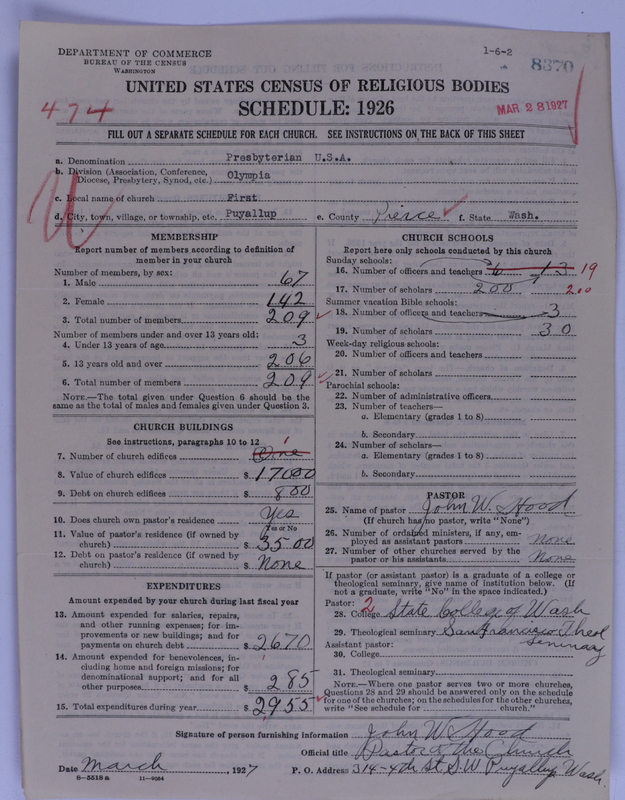 DEPARTMENT OF COMMERCE
BUREAU OF THE CENSUS
WASHINGTON
1-6-2
8370
UNITED STATES CENSUS OF RELIGIOUS BODIES
SCHEDULE: 1926
474
MAR 28 1927
FILL OUT A SEPARATE SCHEDULE FOR EACH CHURCH. SEE INSTRUCTIONS ON THE BACK OF THIS SHEET
a. Denomination Presbyterian U.S.A.
b. Division (Association, Conference, Diocese, Presbytery, Synod, etc.) Olympia
c. Local name of church First
d. City, town, village, or township, etc. Puyallup e. County Pierce f. State Wash.
MEMBERSHIP
Report number of members according to definition of
member in your church
Number of members, by sex:
1. Male 67
2. Female 142
3. Total number of members 209
Number of members under and over 13 years old:
4. Under 13 years of age 3
5. 13 years old and over 206
6. Total number of members 209
NOTE.—The total given under Question 6 should be the
same as the total of males and females given under Question 3.
CHURCH BUILDINGS
See instructions, paragraphs 10 to 12
7. Number of church edifices One 1
8. Value of church edifices $ 17000
9. Debt on church edifices $ 800
10. Does church own pastor's residence Yes
Yes or No
11. Value of pastor's residence (if owned by
church) $ 3500
12. Debt on pastor's residence (if owned by
church) $ None
EXPENDITURES
Amount expended by your church during last fiscal year
13. Amount expended for salaries, repairs,
and other running expenses; for im-
provements or new buildings; and for
payments on church debt $ 2670
14. Amount expended for benevolences, in-
cluding home and foreign missions; for
denominational support; and for all
other purposes $ 285
15. Total expenditures during year $ 2955
CHURCH SCHOOLS
Report here only schools conducted by this church
Sunday schools:
16. Number of officers and teachers 6 13 19
17. Number of scholars 200 200
Summer vacation Bible schools:
18. Number of officers and teachers 3
19. Number of scholars 30
Week-day religious schools:
20. Number of officers and teachers
21. Number of scholars
Parochial schools:
22. Number of administrative officers
23. Number of teachers—
a. Elementary (grades 1 to 8)
b. Secondary
24. Number of scholars—
a. Elementary (grades 1 to 8)
b. Secondary
PASTOR
25. Name of pastor John W. Hood
(If church has no pastor, write "None")
26. Number of ordained ministers, if any, em-
ployed as assistant pastors None
27. Number of other churches served by the
pastor or his assistants None
If pastor (or assistant pastor) is a graduate of a college or
theological seminary, give name of institution below. (If
not a graduate, write "No" in the space indicated.)
Pastor: 2
28. College State College of Wash
29. Theological seminary San Francisco Theol Seminary
Assistant pastor:
30. College
31. Theological seminary
NOTE.—Where one pastor serves two or more churches,
Questions 28 and 29 should be answered only on the schedule
for one of the churches; on the schedules for the other churches,
write "See schedule for church."
Signature of person furnishing information John W. Hood
Official title Pastor of the Church
Date March, 1927 P. O. Address 314-4th St. S.W Puyallup, Wash.
8-5518 a 11-9064